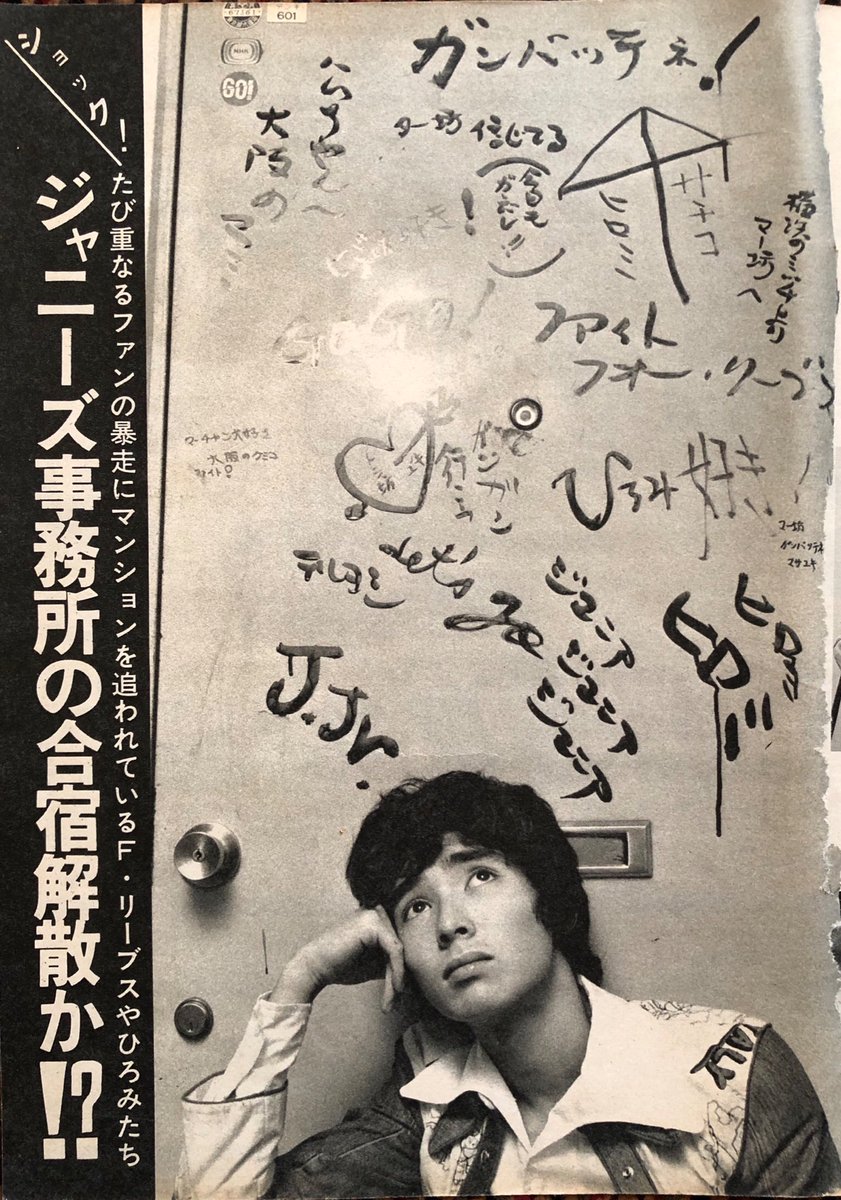 ショック!
たび重なるファンの暴走にマンションを追われているF・リーブスやひろみたち
ジャニーズ事務所の合宿解散か!?
601
NHK
GO!
ガンバッテネ!
ター坊 信じてる
!
大阪の
マミ
サチコ
ヒロミ
マー坊へ
ファイト
フォー・リーブス
マーチャン大好き
大阪のクミコ
ファイト!
ガンガン
行こう
ひろみ 好き!
マー坊
ガンバッテネ
マサユキ
テレヨミ
Let's go
ジュニア
ジュニア
ジュニア
J.Jr.
ヒロミ
ITALY